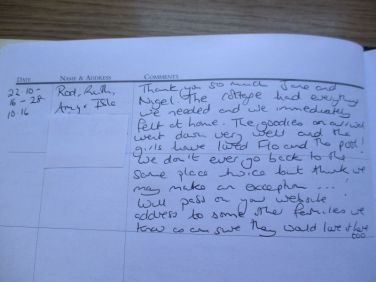 DATE NAME & ADDRESS COMMENTS
22-10-16 - 28-10-16
Rod, Ruth,
Amy & Isla
Thank you so much Jane and
Nigel. The cottage had everything
we needed and we immediately
felt at home. The goodies on arrival
went down very well and the
girls have loved Flo and the pool!
We don't ever go back to the
same place twice but think we
may make an exception ...!
Will pass on your website
address to some other families we
know as am sure they would love it here
too.